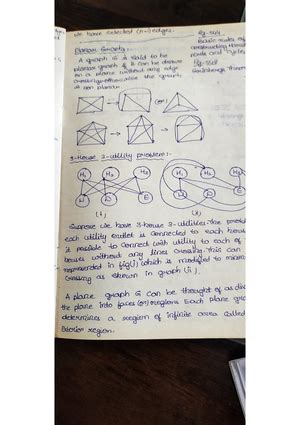 we have selected (n-1) edges.
Planar Graphs:-
A graph G is said to be
planar graph if it can be drawn
on a plane without any edge
crossing otherwise the graph
is non planar.
(or)
3-House 3-utility problem:-
H1 H2 H3
W E
(i)
H1 H2 H3
E
(ii)
Suppose we have 3-house 3-utilities the
each utility outlet is connected to each
it possible to connect with utility to each of
houses without any lines crossing. this can
represented in fig(i) which is modified to
crossing as shown in graph (ii).
A plane graph G can be thought of as
the plane into faces (or) regions Each plane
determines a region of infinite area called
Exterior region.